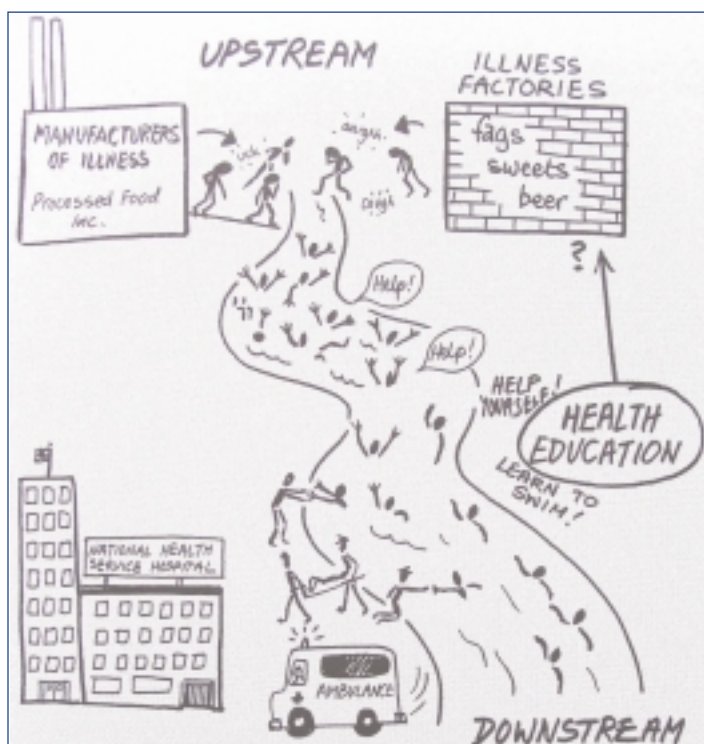 UPSTREAM
ILLNESS
FACTORIES
MANUFACTURERS
OF ILLNESS
Processed Food
Inc.
fags
sweets
beer
?
Help!
Help!
HELP
YOURSELF!
HEALTH
EDUCATION
LEARN TO
SWIM!
NATIONAL HEALTH
SERVICE HOSPITAL
AMBULANCE
DOWNSTREAM